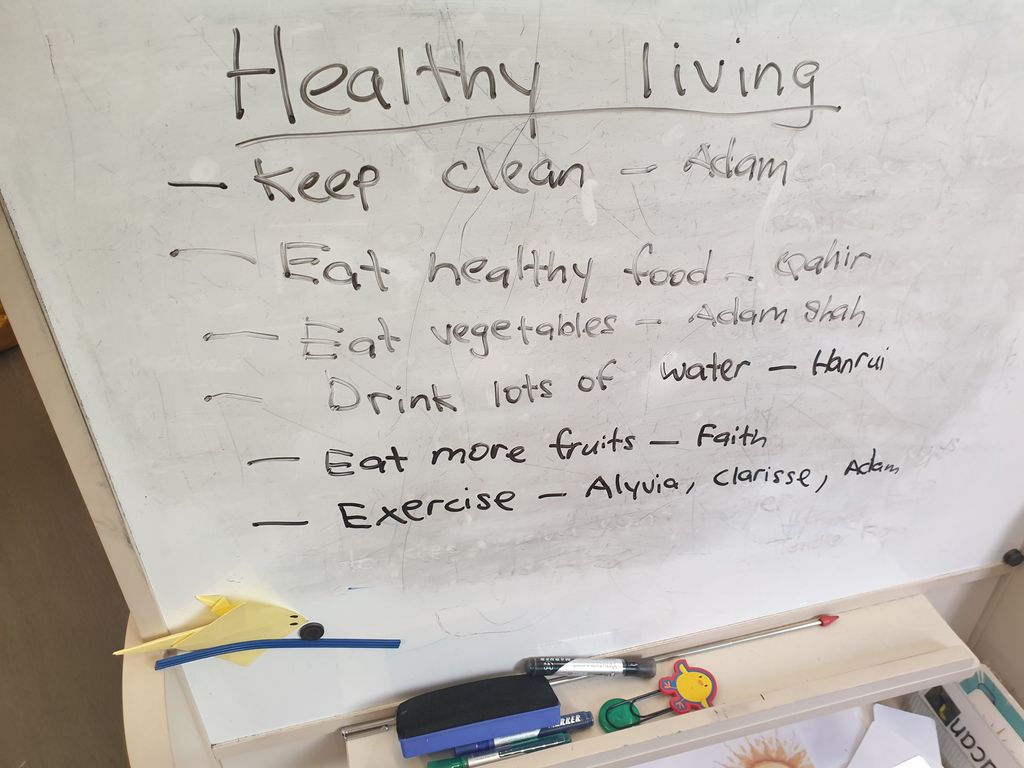 Healthy living
- Keep clean - Adam
- Eat healthy food - Qahir
- Eat vegetables - Adam Shah
- Drink lots of water - Hanrui
- Eat more fruits - Faith
- Exercise - Alyvia, Clarisse, Adam
MARKER
ucan